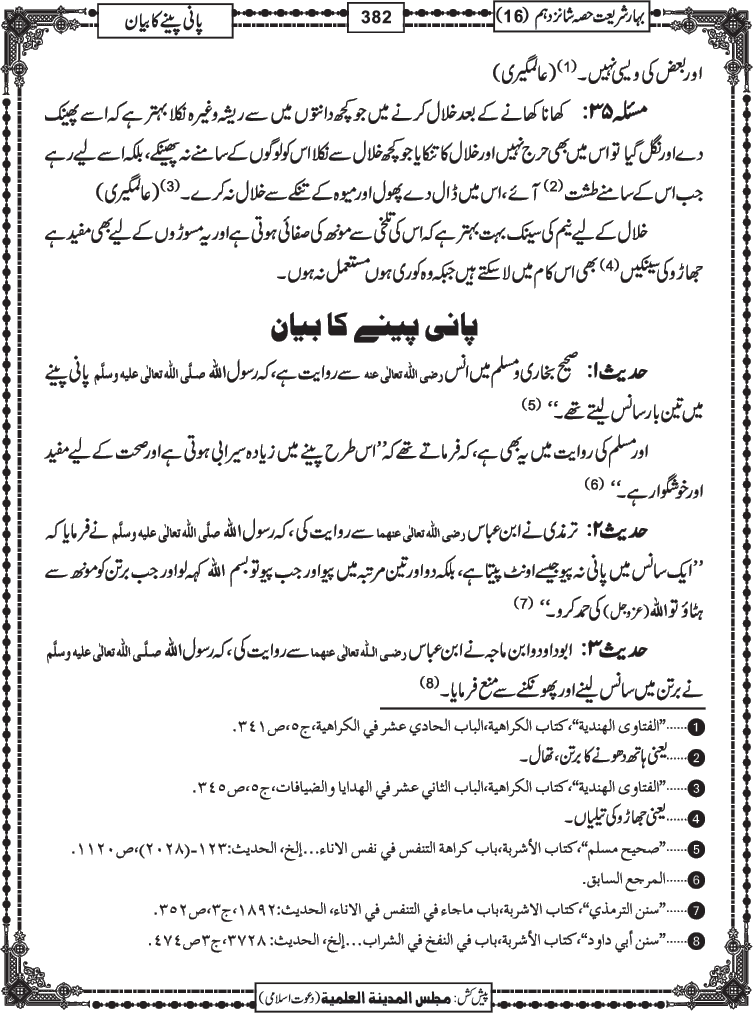 بہارِ شریعت حصہ شانزدہم (16)
382
پانی پینے کا بیان
اور بعض کی ویسی نہیں۔(1) (عالمگیری)
مسئلہ ۳۵: کھانا کھانے کے بعد خلال کرنے میں جو کچھ دانتوں میں سے ریشہ وغیرہ نکلا بہتر ہے کہ اسے پھینک
دے اور نگل گیا تو اس میں بھی حرج نہیں اور خلال کا تنکا یا جو کچھ خلال سے نکلا اس کو لوگوں کے سامنے نہ پھینکے، بلکہ اسے لیے رہے
جب اس کے سامنے طشت(2) آئے، اس میں ڈال دے پھول اور میوہ کے تنکے سے خلال نہ کرے۔(3) (عالمگیری)
خلال کے لیے نیم کی سینک بہت بہتر ہے کہ اس کی تلخی سے مونھ کی صفائی ہوتی ہے اور یہ مسوڑوں کے لیے بھی مفید ہے
جھاڑو کی سینکیں(4) بھی اس کام میں لا سکتے ہیں جبکہ وہ کوری ہوں مستعمل نہ ہوں۔
پانی پینے کا بیان
حدیث ۱: صحیح بخاری و مسلم میں انس رضی اللہ تعالٰی عنہ سے روایت ہے، کہ رسول اللہ صلَّی اللہ تعالٰی علیہ وسلَّم پانی پینے
میں تین بار سانس لیتے تھے۔‘‘ (5)
اور مسلم کی روایت میں یہ بھی ہے، کہ فرماتے تھے کہ ’’اس طرح پینے میں زیادہ سیرابی ہوتی ہے اور صحت کے لیے مفید
اور خوشگوار ہے۔‘‘ (6)
حدیث ۲: ترمذی نے ابن عباس رضی اللہ تعالٰی عنہما سے روایت کی، کہ رسول اللہ صلَّی اللہ تعالٰی علیہ وسلَّم نے فرمایا کہ
’’ایک سانس میں پانی نہ پیو جیسے اونٹ پیتا ہے، بلکہ دو اور تین مرتبہ میں پیو اور جب پیو تو بسم اللہ کہہ لو اور جب برتن کو مونھ سے
ہٹاؤ تو اللہ (عزوجل) کی حمد کرو۔‘‘ (7)
حدیث ۳: ابو داود و ابن ماجہ نے ابن عباس رضی اللہ تعالٰی عنہما سے روایت کی، کہ رسول اللہ صلَّی اللہ تعالٰی علیہ وسلَّم
نے برتن میں سانس لینے اور پھونکنے سے منع فرمایا۔(8)
1......”الفتاوی الهندية“، كتاب الكراهية، الباب الحادي عشر في الكراهية، ج٥، ص٣٤١.
2......یعنی ہاتھ دھونے کا برتن، تھال۔
3......”الفتاوی الهندية“، كتاب الكراهية، الباب الثاني عشر في الهدايا والضيافات، ج٥، ص٣٤٥.
4......یعنی جھاڑو کی تیلیاں۔
5......”صحيح مسلم“، كتاب الأشربة، باب كراهة التنفس في نفس الاناء...إلخ، الحديث:١٢٣-(٢٠٢٨)، ص١١٢٠.
6......المرجع السابق.
7......”سنن الترمذي“، كتاب الاشربة، باب ماجاء في التنفس في الاناء، الحديث:١٨٩٢، ج٣، ص٣٥٢.
8......”سنن أبي داود“، كتاب الأشربة، باب في النفخ في الشراب...إلخ، الحديث: ٣٧٢٨، ج٣ص٤٧٤.
پیش کش: مجلس المدينة العلمية (دعوت اسلامی)